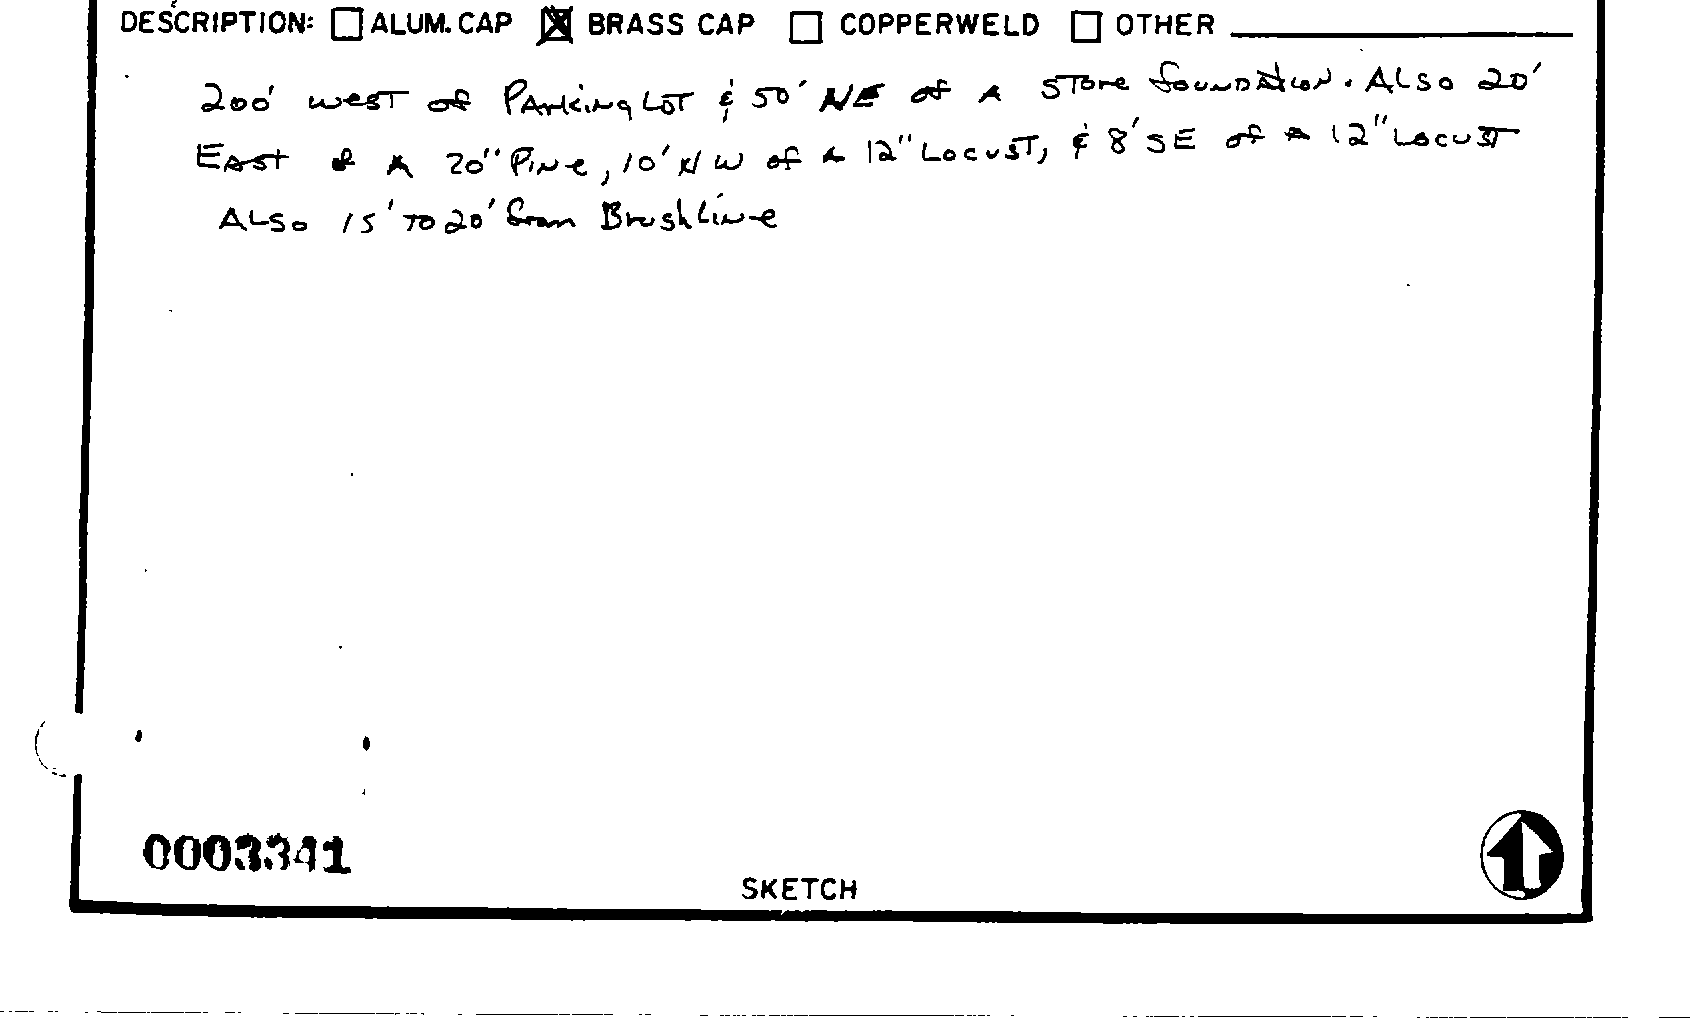 DESCRIPTION: ☐ ALUM. CAP ☒ BRASS CAP ☐ COPPERWELD ☐ OTHER
200' west of Parking Lot & 50' NE of A STone foundation. ALSO 20'
EAST of A 20" Pine, 10' NW of A 12" Locust, & 8' SE of A 12" Locust
ALSO 15' TO 20' from Brushline
0003341
SKETCH